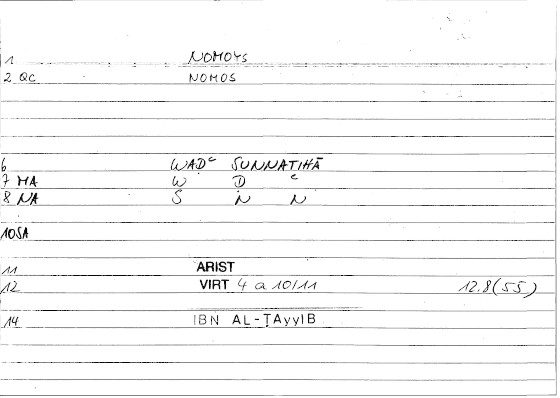 1 NOMOYS
2 QC NOMOS
6 WAḌᶜ SUNNATIHĀ
7 MA W Ḍ ᶜ
8 NA S N N
10SA
11 ARIST
12 VIRT 4 a 10/11 12.8(55)
14 IBN AL-ṬAyyIB